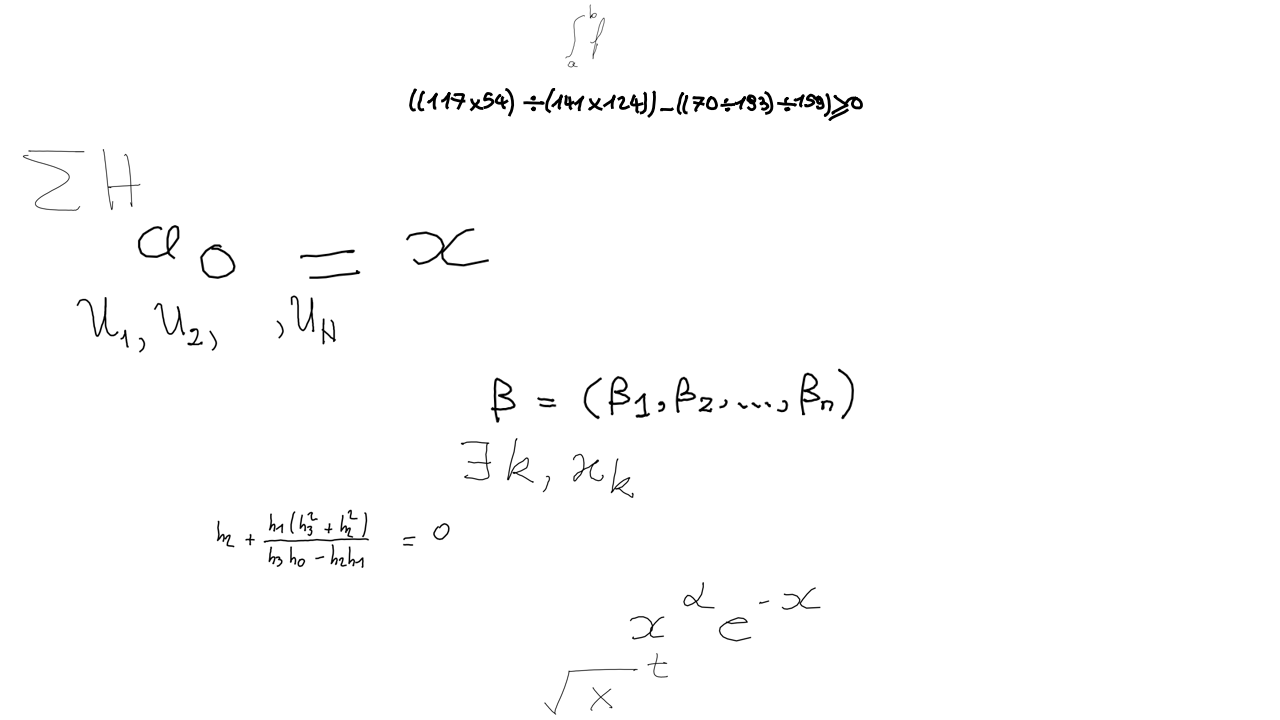 ∫_a^b f
((117×54)÷(141×124))-((70÷193)÷159)≥0
∑H
a_0 = x
u_1, u_2, , u_H
β = (β_1, β_2, ..., β_n)
∃k, x_k
h_2 + (h_1(h_3^2 + h_2^2))/(h_3 h_0 - h_2 h_1) = 0
x^α e^{-x}
√x^t